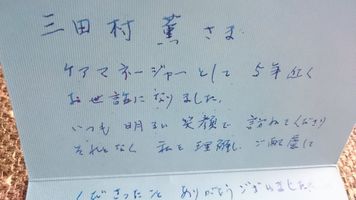 三田村 薫 さま
ケアマネージャーとして 5年近く
お世話になりました。
いつも明るい笑顔で 訪れてくださり
それとなく 私を理解し ご配慮して
くださったこと ありがとうございました。